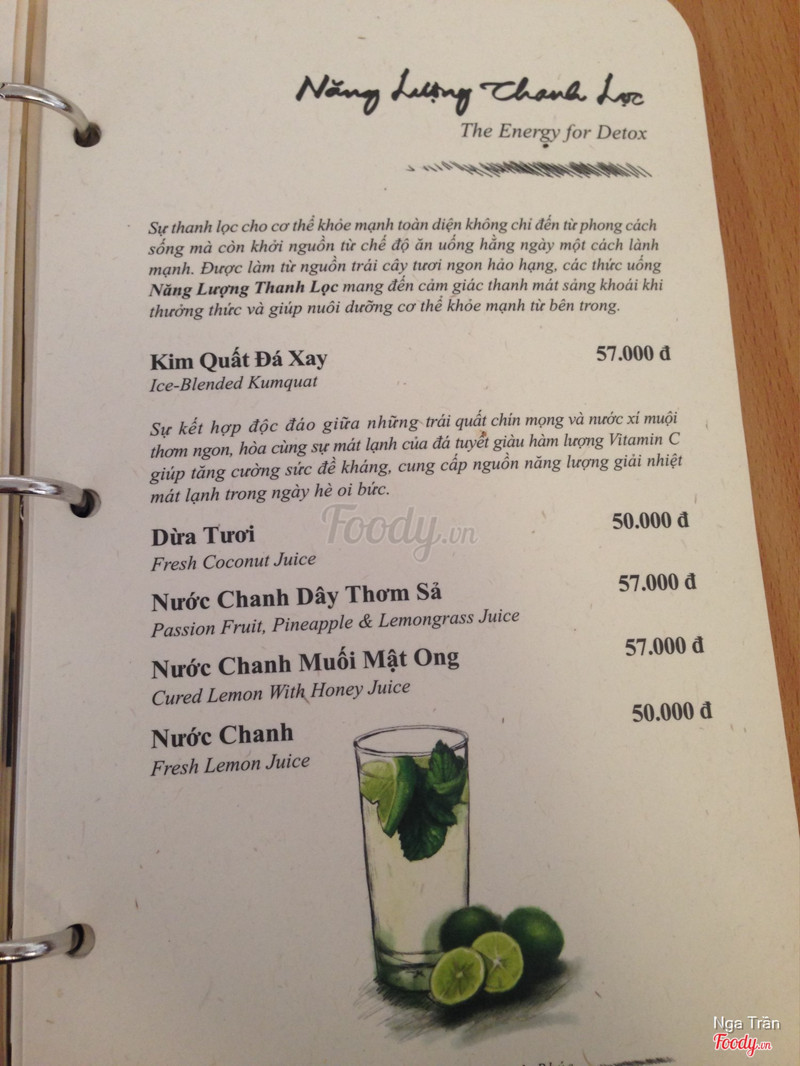 Năng Lượng Thanh Lọc
The Energy for Detox
Sự thanh lọc cho cơ thể khỏe mạnh toàn diện không chỉ đến từ phong cách
sống mà còn khởi nguồn từ chế độ ăn uống hằng ngày một cách lành
mạnh. Được làm từ nguồn trái cây tươi ngon hảo hạng, các thức uống
Năng Lượng Thanh Lọc mang đến cảm giác thanh mát sảng khoái khi
thưởng thức và giúp nuôi dưỡng cơ thể khỏe mạnh từ bên trong.
Kim Quất Đá Xay 57.000 đ
Ice-Blended Kumquat
Sự kết hợp độc đáo giữa những trái quất chín mọng và nước xí muội
thơm ngon, hòa cùng sự mát lạnh của đá tuyết giàu hàm lượng Vitamin C
giúp tăng cường sức đề kháng, cung cấp nguồn năng lượng giải nhiệt
mát lạnh trong ngày hè oi bức.
Foody.vn
Dừa Tươi 50.000 đ
Fresh Coconut Juice
Nước Chanh Dây Thơm Sả 57.000 đ
Passion Fruit, Pineapple & Lemongrass Juice
Nước Chanh Muối Mật Ong 57.000 đ
Cured Lemon With Honey Juice
Nước Chanh 50.000 đ
Fresh Lemon Juice
Nga Trần
Foody.vn